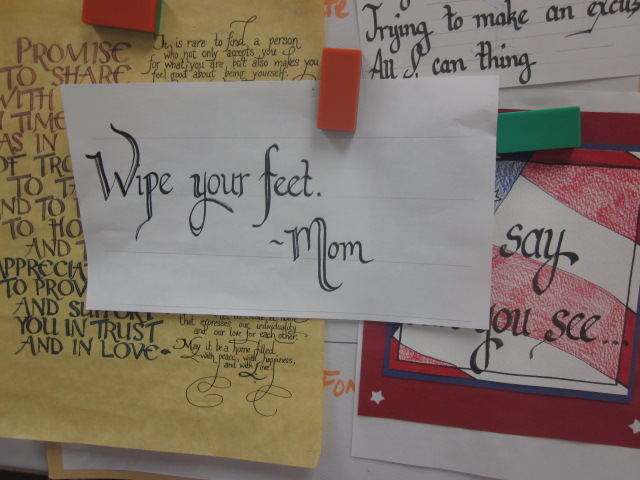 PROMISE
TO SHARE
WITH
TIME
AS IN
OF
TO
AND TO
TO HO
AND
APPRECIA
TO PROV
AND SUPPORT
YOU IN TRUST
AND IN LOVE
It is rare to find a person
who not only accepts you
for what you are, but also makes you
feel good about being yourself.
that expresses our individuality
and our love for each other
May it be a home filled
with peace, with happiness,
and with Love
Trying to make an excus
All I can thing
Wipe your feet.
~Mom
say
you see...